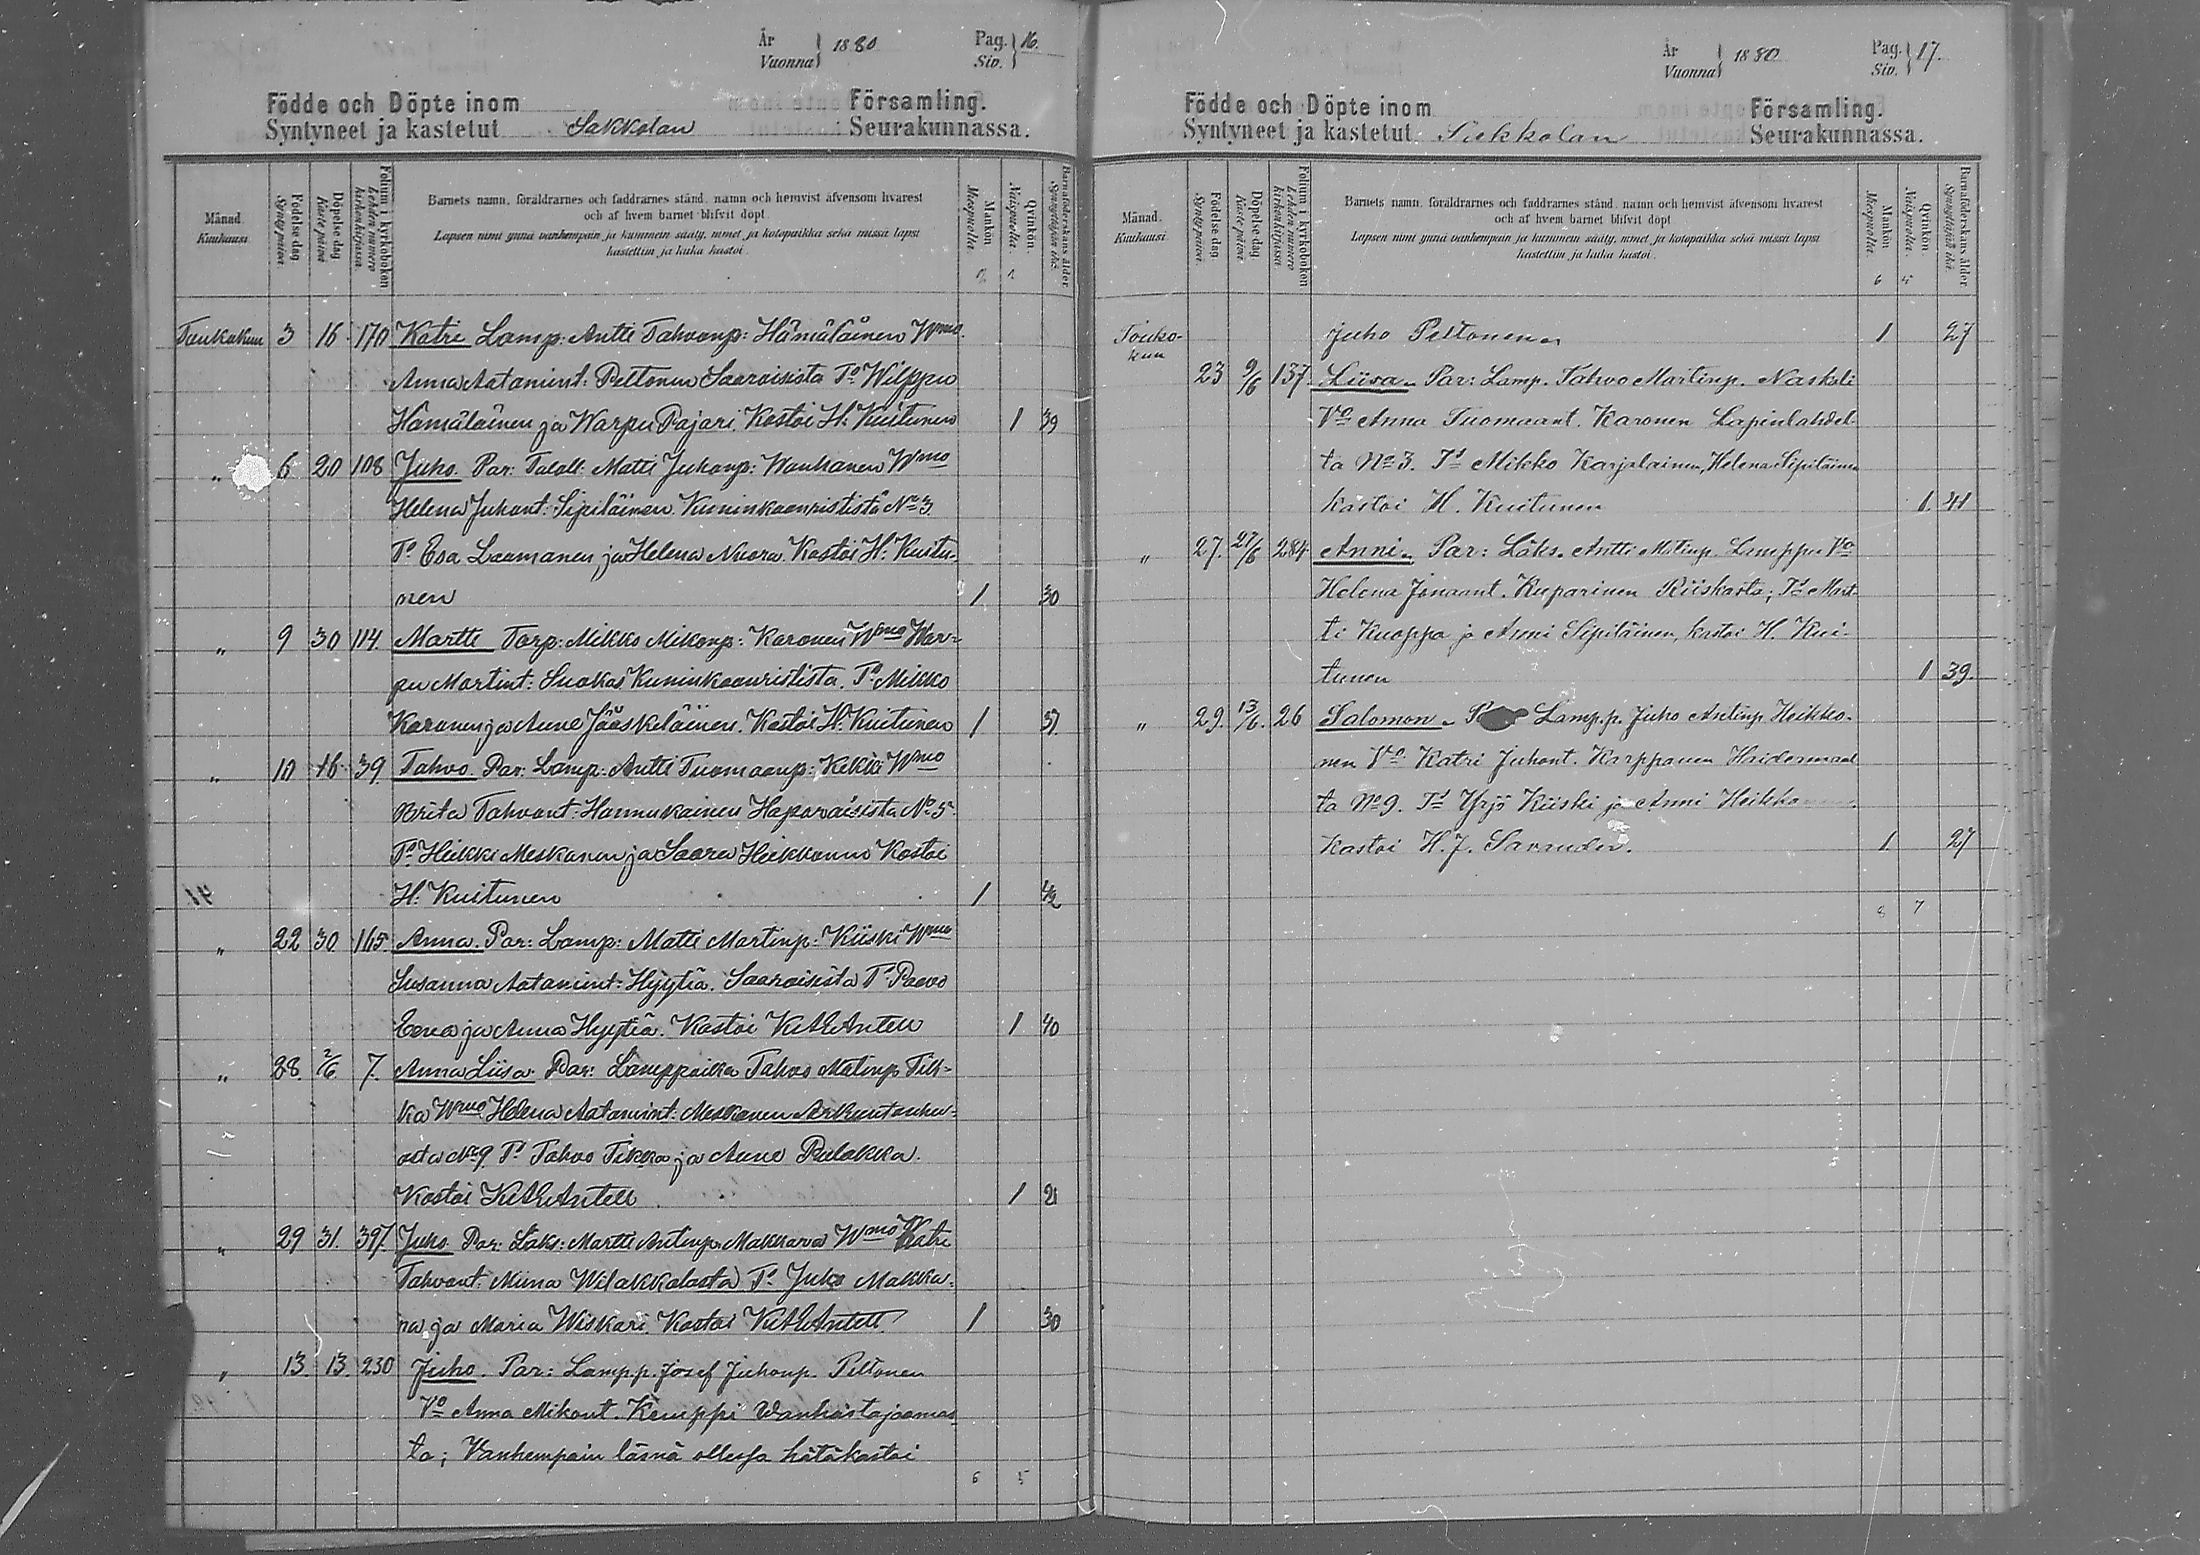 År
Vuonna
1880
Pag.
Siv.
16.
Födde och Döpte inom Församling.
Syntyneet ja kastetut Sakkolan Seurakunnassa.
Månad. Kuukausi.
Födelse dag Syntypäivä
Döpelse dag Kastepäivä
Folium i kyrkoboken Lehden numero kirkonkirjassa
Barnets namn, föräldrarnes och faddrarnes stånd, namn och hemvist äfvensom hvarest
och af hvem barnet blifvit döpt.
Lapsen nimi ynnä vanhempain ja kummein sääty, nimet ja kotopaikka sekä missä lapsi
kastettiin ja kuka kastoi.
Mankön Miespuolia.
Qvinkön. Naispuolia.
Barnaföderskans ålder Synnyttäjän ikä.
2 1
Toukokuu 3 16 170 Katri Lamp: Antti Tahvonp: Hämäläinen Wmo
Anna Aatamint: Peltonen Saaroisista To Wilppu
Hämäläinen ja Warpu Pajari. Kastoi H: Kuitunen 1 39
" 6 20 108 Juho Par: Taloll: Matti Juhonp: Wanhanen Wmo
Helena Juhont: Sipiläinen Kuninkaanrististä No 3.
Ts Esa Laamanen ja Helena Nuora. Kastoi H: Kuitu-
nen 1 30
" 9 30 114. Martti Torp: Mikko Mikonp: Karonen Wmo War-
pu Martint: Suokas Kuninkaanristista. Ts Mikko
Karonen ja Anne Jääskeläinen. Kastoi H: Kuitunen 1 37
" 10 16 39 Tahvo Par: Lamp: Antti Tuomaanp: Kekki Wmo
Brita Tahvont: Hannukainen Haparaisista No 5.
Ts Heikki Meskanen ja Saara Heikkonen Kastoi
14 H: Kuitunen 1 42
" 22 30 165 Anna. Par: Lamp: Matti Martinp: Kiiski Wmo
Susanna Aatamint: Hyytiä. Saaroisista Ts Paavo
Eeva ja Anna Hyytiä. Kastoi K:A:E:Antell 1 40
" 28. 2/6 7. Anna Liisa Par: Lamppailka Tahvo Matinp Tik-
ka Wmo Helena Aatamint: Meskanen
asta No 9. Ts Tahvo Tikka ja Anne Pulakka.
Kastoi K:A:E:Antell 1 21
" 29 31. 397. Juho Par: Läks: Martti Antinp: Makkara Wmo Katri
Tahvont: Miina Wilakkalasta Ts Juho Makka-
ra ja Maria Wiskari. Kastoi K:A:E:Antell 1 30
" 13. 13. 230 Juho. Par: Lamp.p. Josef Juhonp. Peltonen
Vo Anna Mikont. Kemppi Wanhastajaamas-
ta; Vanhempain läsnä ollessa hätäkastoi
6 5
År
Vuonna
1880
Pag.
Siv.
17.
Födde och Döpte inom Församling.
Syntyneet ja kastetut Sakkolan Seurakunnassa.
Månad. Kuukausi.
Födelse dag Syntypäivä.
Döpelse dag Kastepäivä
Folium i kyrkoboken Lehden numero kirkonkirjassa
Barnets namn, föräldrarnes och faddrarnes stånd, namn och hemvist äfvensom hvarest
och af hvem barnet blifvit döpt.
Lapsen nimi ynnä vanhempain ja kummein sääty, nimet ja kotopaikka sekä missä lapsi
kastettiin ja kuka kastoi.
Mankön Miespuolia.
Qvinkön. Naispuolia.
Barnaföderskans ålder Synnyttäjän ikä.
6 5
Touko-
kuu
Juho Peltonen. 1 27
23 9/6 137. Liisa. Par: Lamp. Tahvo Martinp. Naskali
Vo Anna Tuomaant. Karonen Lapinlahdel-
ta No 3. Ts Mikko Karjalainen, Helena Sipiläinen
kastoi H. Kuitunen 1 41
" 27. 27/6 284 Anni. Par: Läks. Antti Matinp. Lamppu Vo
Helena Jonaant. Kuparinen Riiskasta; Ts Mart-
ti Kuoppa ja Anni Sipiläinen, kastoi H. Kui-
tunen 1 39
" 29. 13/6. 26 Salomon. Lamp.p. Juho Antinp Heikko-
nen Vo Katri Juhont. Karppanen Haidermaal-
ta No 9. Ts Yrjö Kiiski ja Anni Heikko
Kastoi H.J. Savander. 1 27
8 7